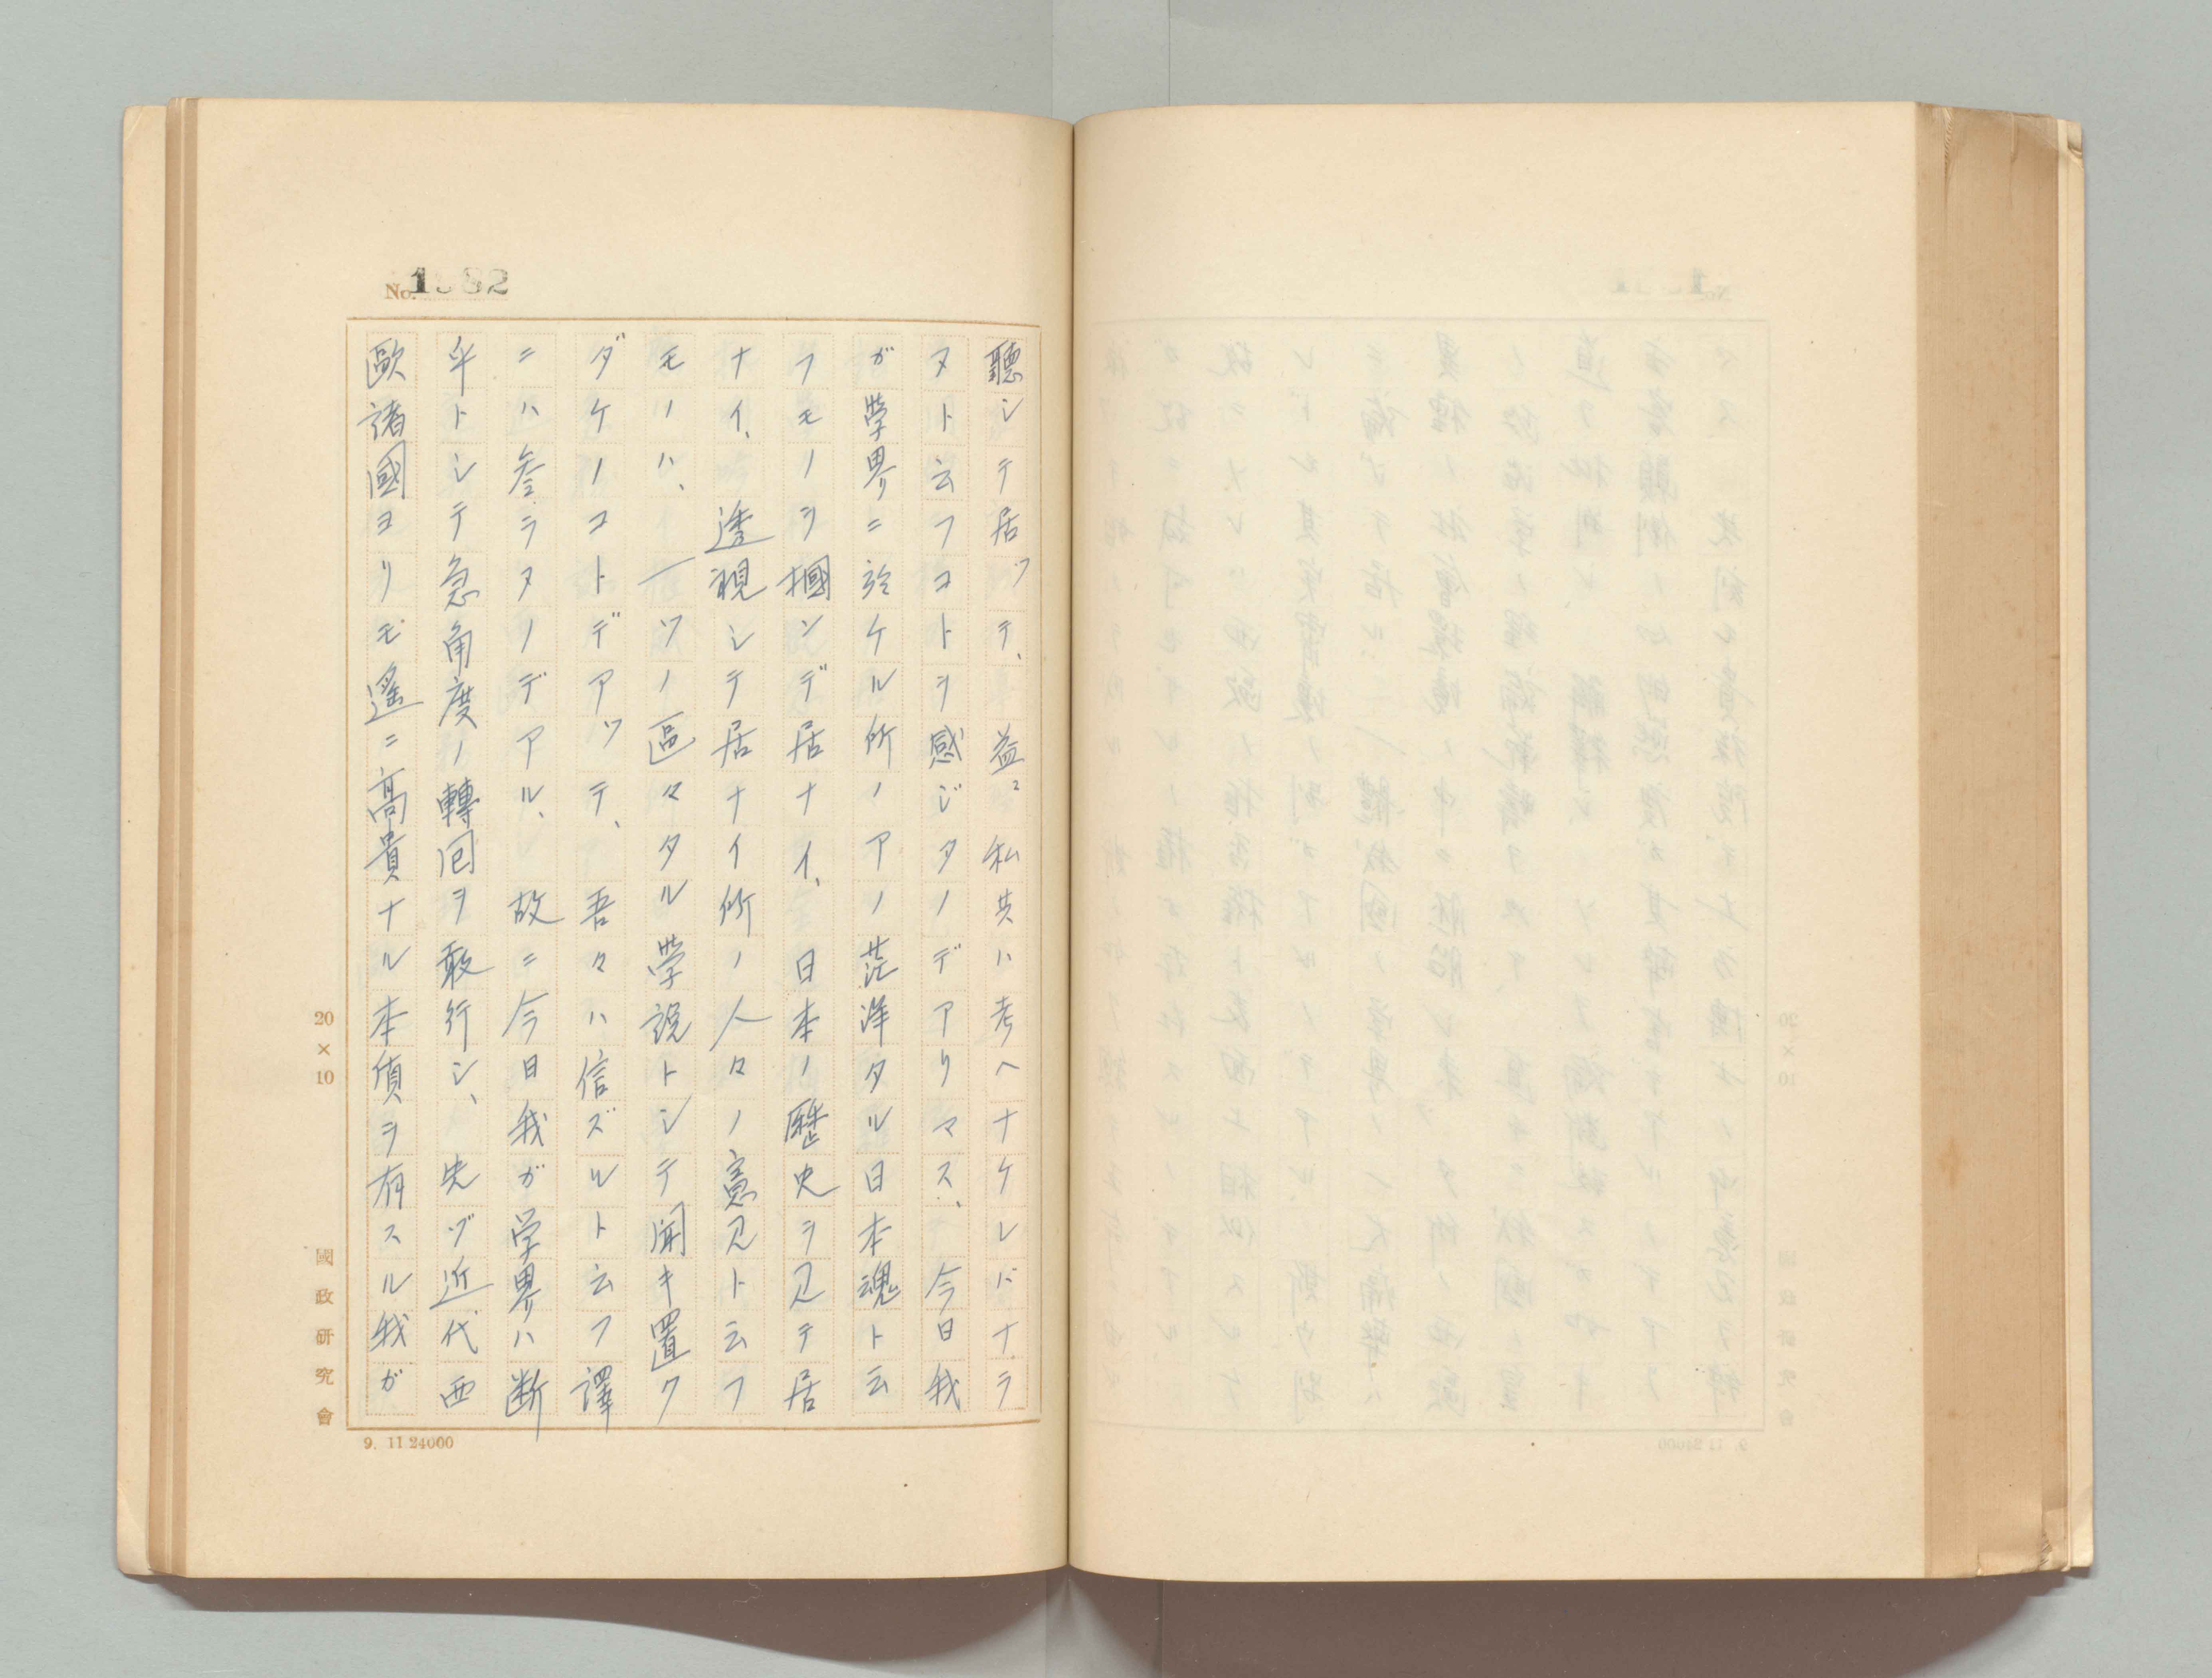 No. 1382
聽シテ居ツテ、益〻私共ハ考ヘナケレバナラ
ヌト云フコトヲ感ジタノデアリマス、今日我
ガ學界ニ於ケル所ノアノ茫洋タル日本魂ト云
フモノヲ摑ンデ居ナイ、日本ノ歷史ヲ見テ居
ナイ、透視シテ居ナイ所ノ人々ノ意見ト云フ
モノハ、一ツノ區々タル學說トシテ聞キ置ク
ダケノコトデアツテ、吾々ハ信ズルト云フ譯
ニハ參ラヌノデアル、故ニ今日我ガ学界ハ断
乎トシテ急角度ノ轉囘ヲ敢行シ、先ヅ近代西
歐諸國ヨリモ遙ニ高貴ナル本値ヲ有スル我ガ
20×10
國政研究會
9. 11 24000